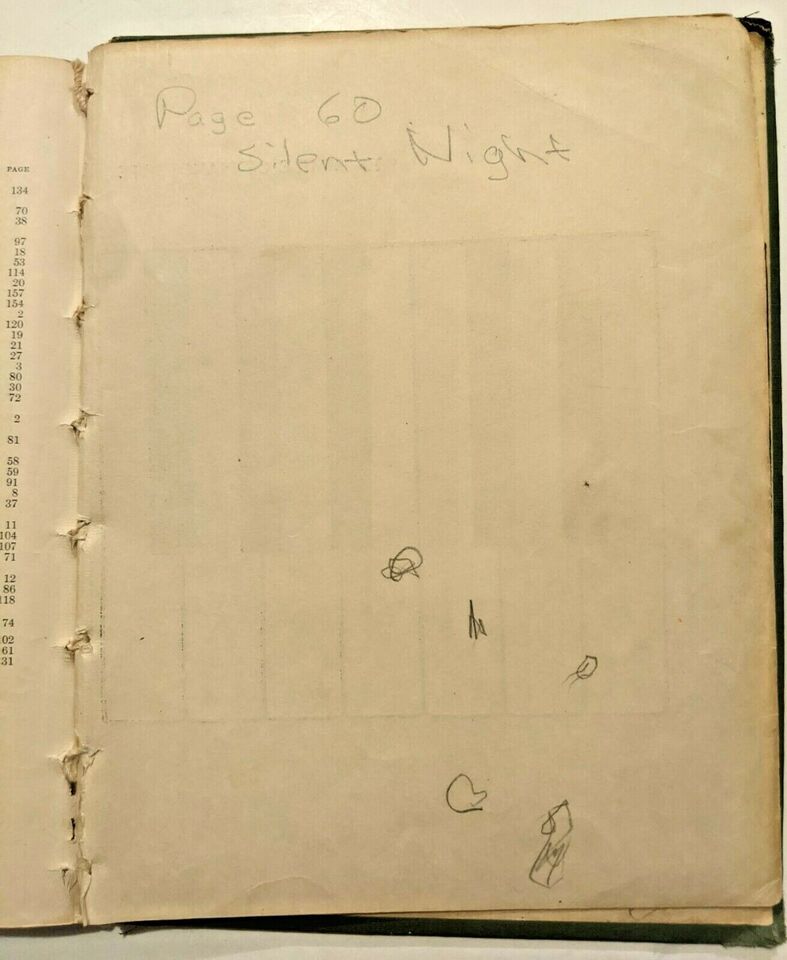 PAGE
134
70
38
97
18
53
114
20
157
154
2
120
19
21
27
3
80
30
72
2
81
58
59
91
8
37
11
104
107
71
12
86
118
74
02
61
31
Page 60
Silent Night